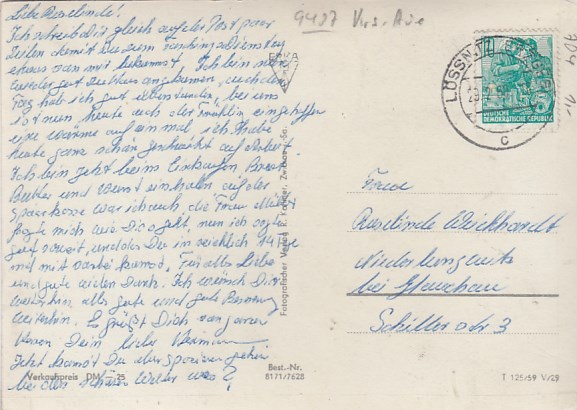 Liebe Roselinde!
Ich schreibe Dir gleich auf der Post paar
Zeilen damit Du zum Faschingsdienstag
etwas von mir bekommst. Ich bin
wieder gut zuhause angekommen, auch den
Tag hab ich gut überstanden, bei uns
ist nun heute auch der Frühling eingetroffen
eine Wärme auf einmal, ich habe
heute ganz schön geschwitzt auf Arbeit.
Ich bin jetzt beim Einkaufen, Brot
Butter und Wurst einholen auf der
Sparkasse war ich auch, die Frau
fragte mich wie Dirs geht, nun ich sagte
gut soweit, und das Du in 14 Tge
mit nach kommst. Für alles Liebe
und gute vielen Dank. Ich wünsch Dir
weiterhin alles gute und gute Besserung
weiterhin. Es grüßt Dich von ganzen
Herzen Dein lieber
Jetzt kannst Du aber spazieren gehen
bei den schönen Wetter was?
Verkaufspreis DM -.25
Best.-Nr.
8171/7628
Fotografischer Verlag R. Kallmer, Zwickau-Sa.
ERIKA
9427
LÖSSNITZ
c
5
DEUTSCHE
DEMOKRATISCHE REPUBLIK
Frau
Roselinde Weichhardt
Niederlungwitz
bei Glauchau
Schillerstr 3
T 125/59 V/29